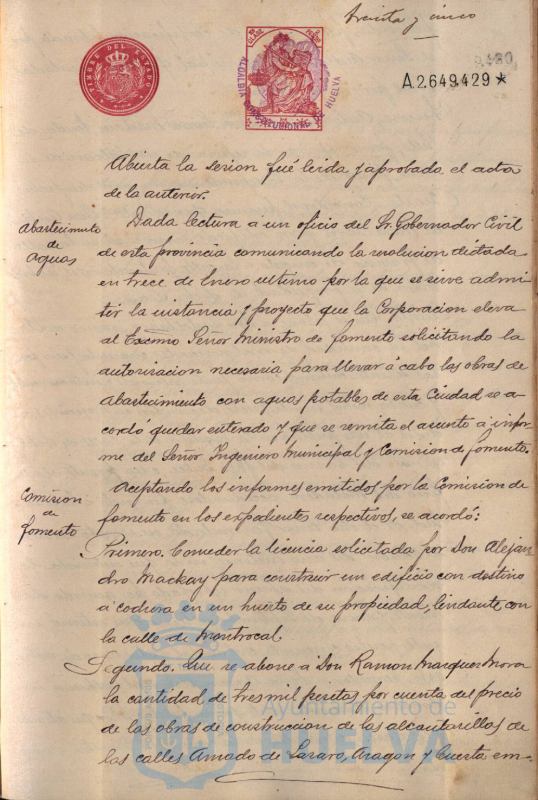 treinta y cinco
TIMBRE DEL ESTADO
ALCALDIA CONSTITUCIONAL DE HUELVA
A.2.649.429 *
Abierta la sesion fué leida y aprobada el acta
de la anterior.
Abastecimiento
de
Aguas
Dada lectura á un oficio del Sr. Gobernador Civil
de esta provincia comunicando la resolucion dictada
en trece de Enero ultimo por la que se sirve admi-
tir la instancia y proyecto que la Corporacion eleva
al Excmo Señor Ministro de fomento solicitando la
autorizacion necesaria para llevar á cabo las obras de
abastecimiento con aguas potables de esta Ciudad se a-
cordó quedar enterado y que se remita el asunto á infor-
me del Señor Ingeniero Municipal y Comision de fomento.
Comision
de
fomento
Aceptando los informes emitidos por la Comision de
fomento en los expedientes respectivos, se acordó:
Primero. Conceder la licencia solicitada por Don Alejan
dro Mackay para construir un edificio con destino
á cochera en un huerto de su propiedad, lindante con
la calle de Montrocal.
Segundo. Que se abone á Don Ramon Marquez Mora
la cantidad de tres mil pesetas por cuenta del precio
de las obras de construccion de las alcantarillas de
las calles Amado de Lazaro, Aragon y Cuesta em-
Ayuntamiento de
HUELVA